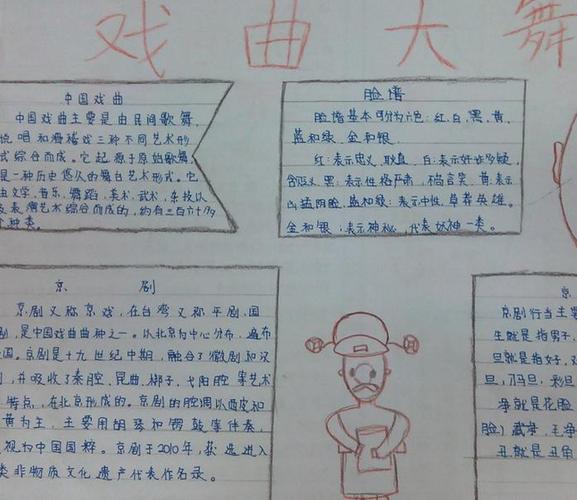 戏曲大舞
中国戏曲
中国戏曲主要是由民间歌舞、
说唱和滑稽戏三种不同艺术形
式综合而成。它起源于原始歌舞
是一种历史悠久的舞台艺术形式。它
由文学、音乐、舞蹈、美术、武术、杂技以
及表演艺术综合而成的,约有三百六十多
个种类。
脸谱
脸谱基本可分为六色:红、白、黑、黄、
蓝和绿、金和银。
红:表示忠义、耿直 白:表示奸诈多疑,
含贬义 黑:表示性格严肃,不苟言笑 黄:表示
凶猛阴险,蓝和绿:表示中性,草莽英雄。
金和银:表示神秘,代表妖神一类。
京剧
京剧又称京戏,在台湾又称平剧、国
剧,是中国戏曲曲种之一。以北京为中心分布,遍布
国。京剧是十九世纪中期,融合了徽剧和汉
剧,并吸收了秦腔、昆曲、梆子、弋阳腔等艺术
特点,在北京形成的。京剧的腔调以西皮和
黄为主,主要用胡琴和锣鼓等伴奏,
视为中国国粹。京剧于2010年,获选进入
类非物质文化遗产代表作名录。
京
京剧行当主要
生就是指男子,
旦就是指女,
旦,刀马旦,彩旦
净就是花脸
脸)武净,毛净
丑就是丑角